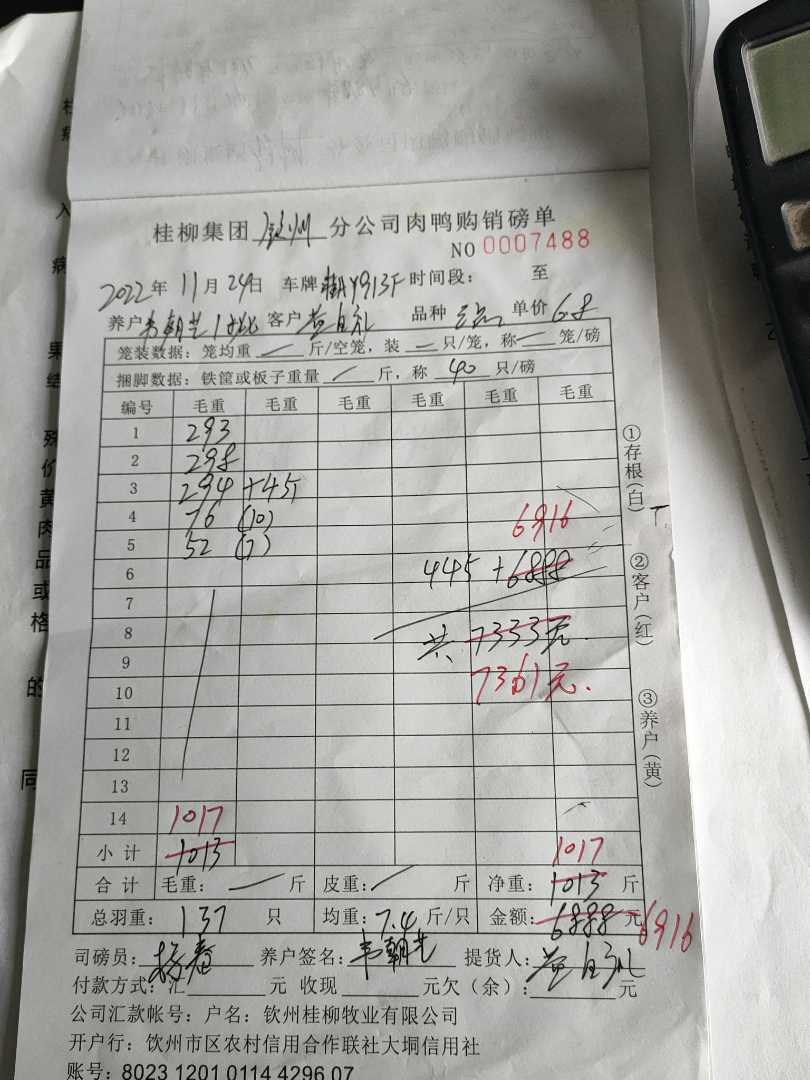 桂柳集团 钦州 分公司肉鸭购销磅单
NO 0007488
2022年 11月 24日 车牌 Y913F 时间段： 至
养户 韦朝艺 客户 品种 单价 6.8
笼装数据：笼均重 斤/空笼，装 只/笼，称 笼/磅
捆脚数据：铁筐或板子重量 斤，称 40 只/磅
编号 毛重 毛重 毛重 毛重 毛重 毛重
1 293
2 298
3 294 +4斤
4 76 (10) 6916
5 52 (7)
6 445 +6888
7
8 共 7333元.
9
10 7361元.
11
12
13
14 1017
小计 1013 1017
合计 毛重： 斤 皮重： 斤 净重：1013 斤
总羽重：137 只 均重：7.4 斤/只 金额：6888 元 6916
司磅员： 养户签名：韦朝艺 提货人：
付款方式：汇 元 收现 元欠（余）： 元
公司汇款帐号：户名：钦州桂柳牧业有限公司
开户行：钦州市区农村信用合作联社大垌信用社
账号：8023 1201 0114 4296 07
①存根(白)
②客户(红)
③养户(黄)